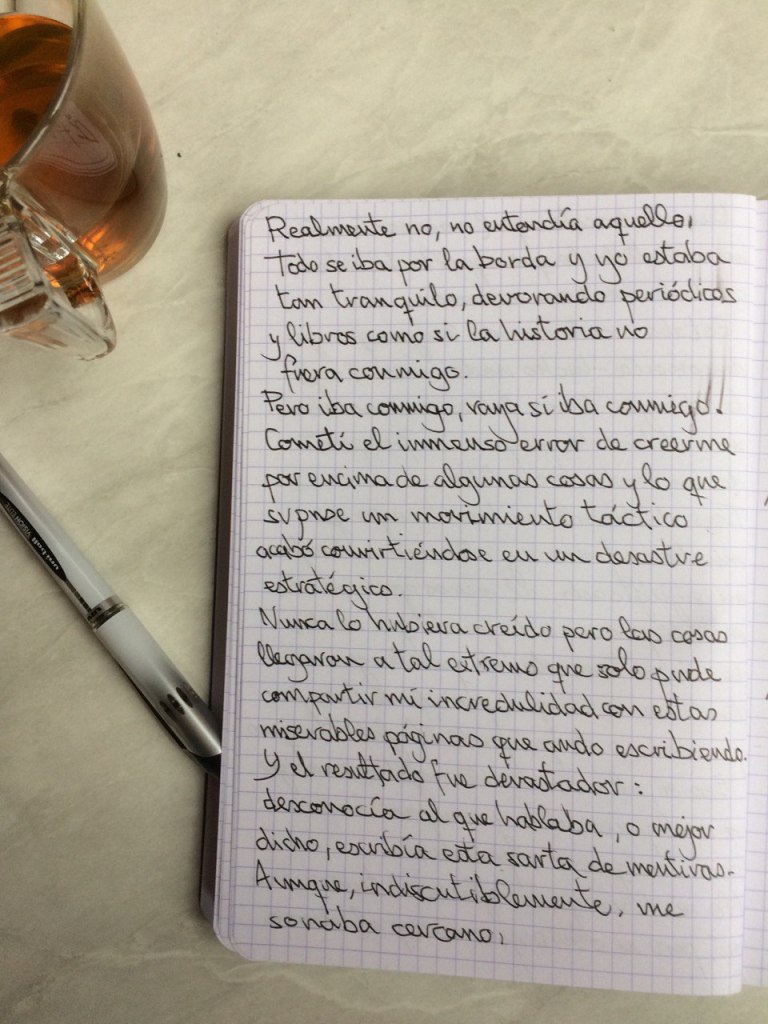 Realmente no, no entendía aquello.
Todo se iba por la borda y yo estaba
tan tranquilo, devorando periódicos
y libros como si la historia no
fuera conmigo.
Pero iba conmigo, vaya si iba conmigo!!
Cometí el inmenso error de creerme
por encima de algunas cosas y lo que
supuse un movimiento táctico
acabó convirtiéndose en un desastre
estratégico.
Nunca lo hubiera creído pero las cosas
llegaron a tal extremo que solo pude
compartir mi incredulidad con estas
miserables páginas que ando escribiendo.
Y el resultado fue devastador:
desconocía al que hablaba, o mejor
dicho, escribía esta sarta de mentiras.
Aunque, indiscutiblemente, me
sonaba cercano.
uni-ball